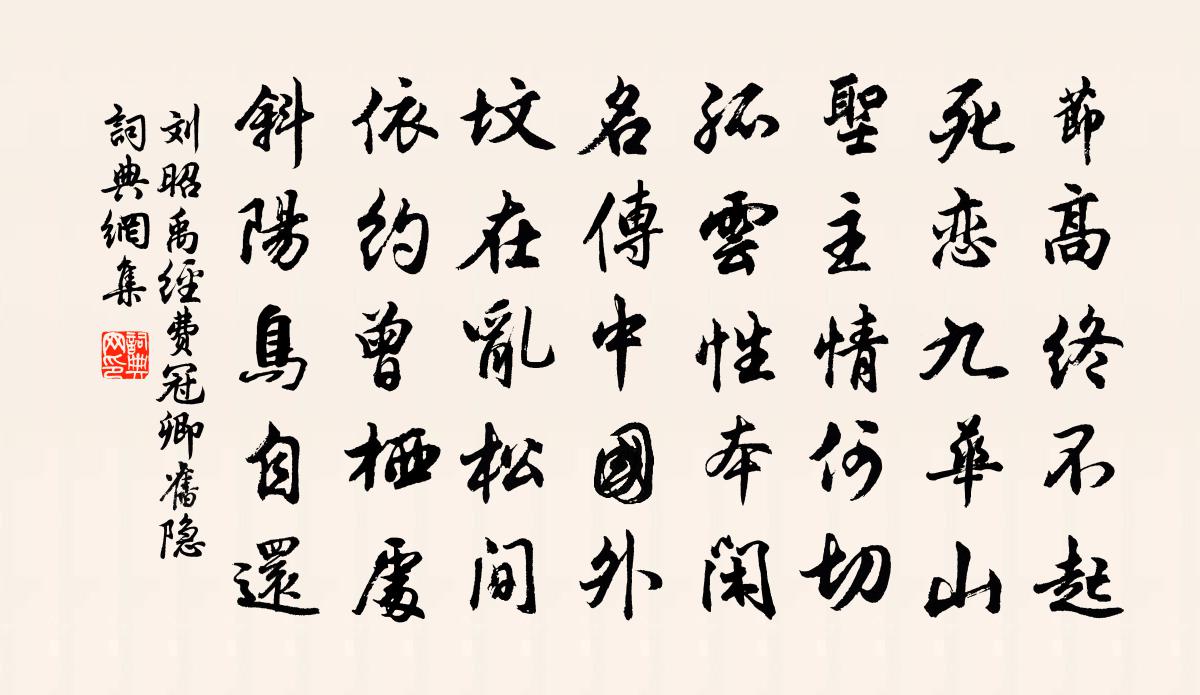 節高終不起
死恋九華山
聖主情何切
孤雲性本閑
名傳中國外
墳在亂松間
依約曾栖處
斜陽鳥自還
刘昭禹經费冠卿舊隐
詞典網集
詞典
网印